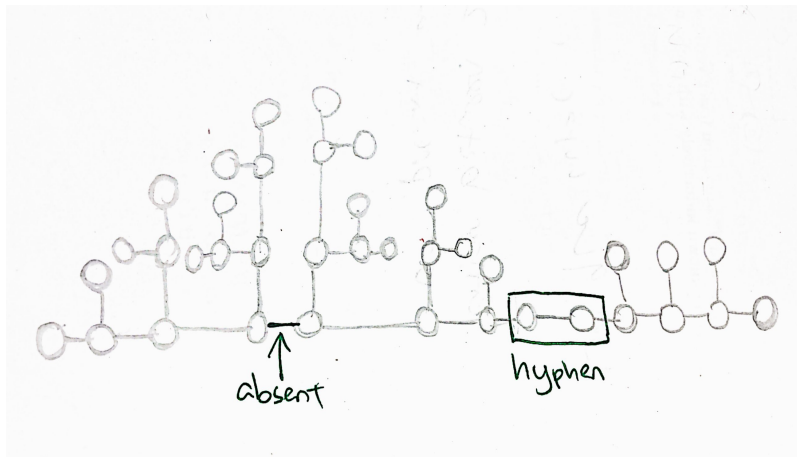 absent
hyphen